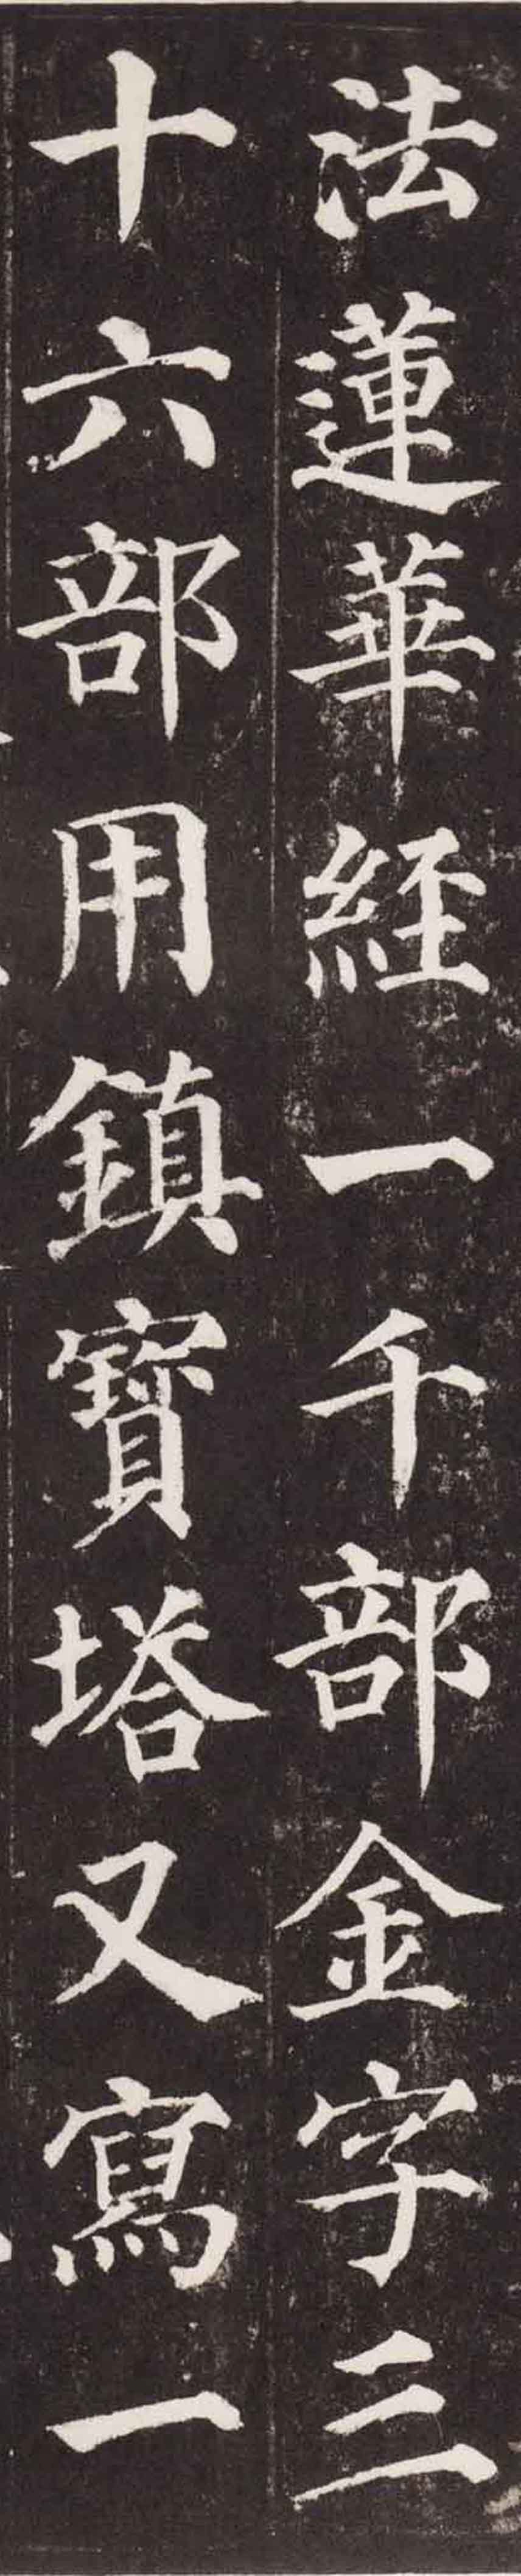 法蓮華經一千部金字三
十六部用鎮寶塔又寫一